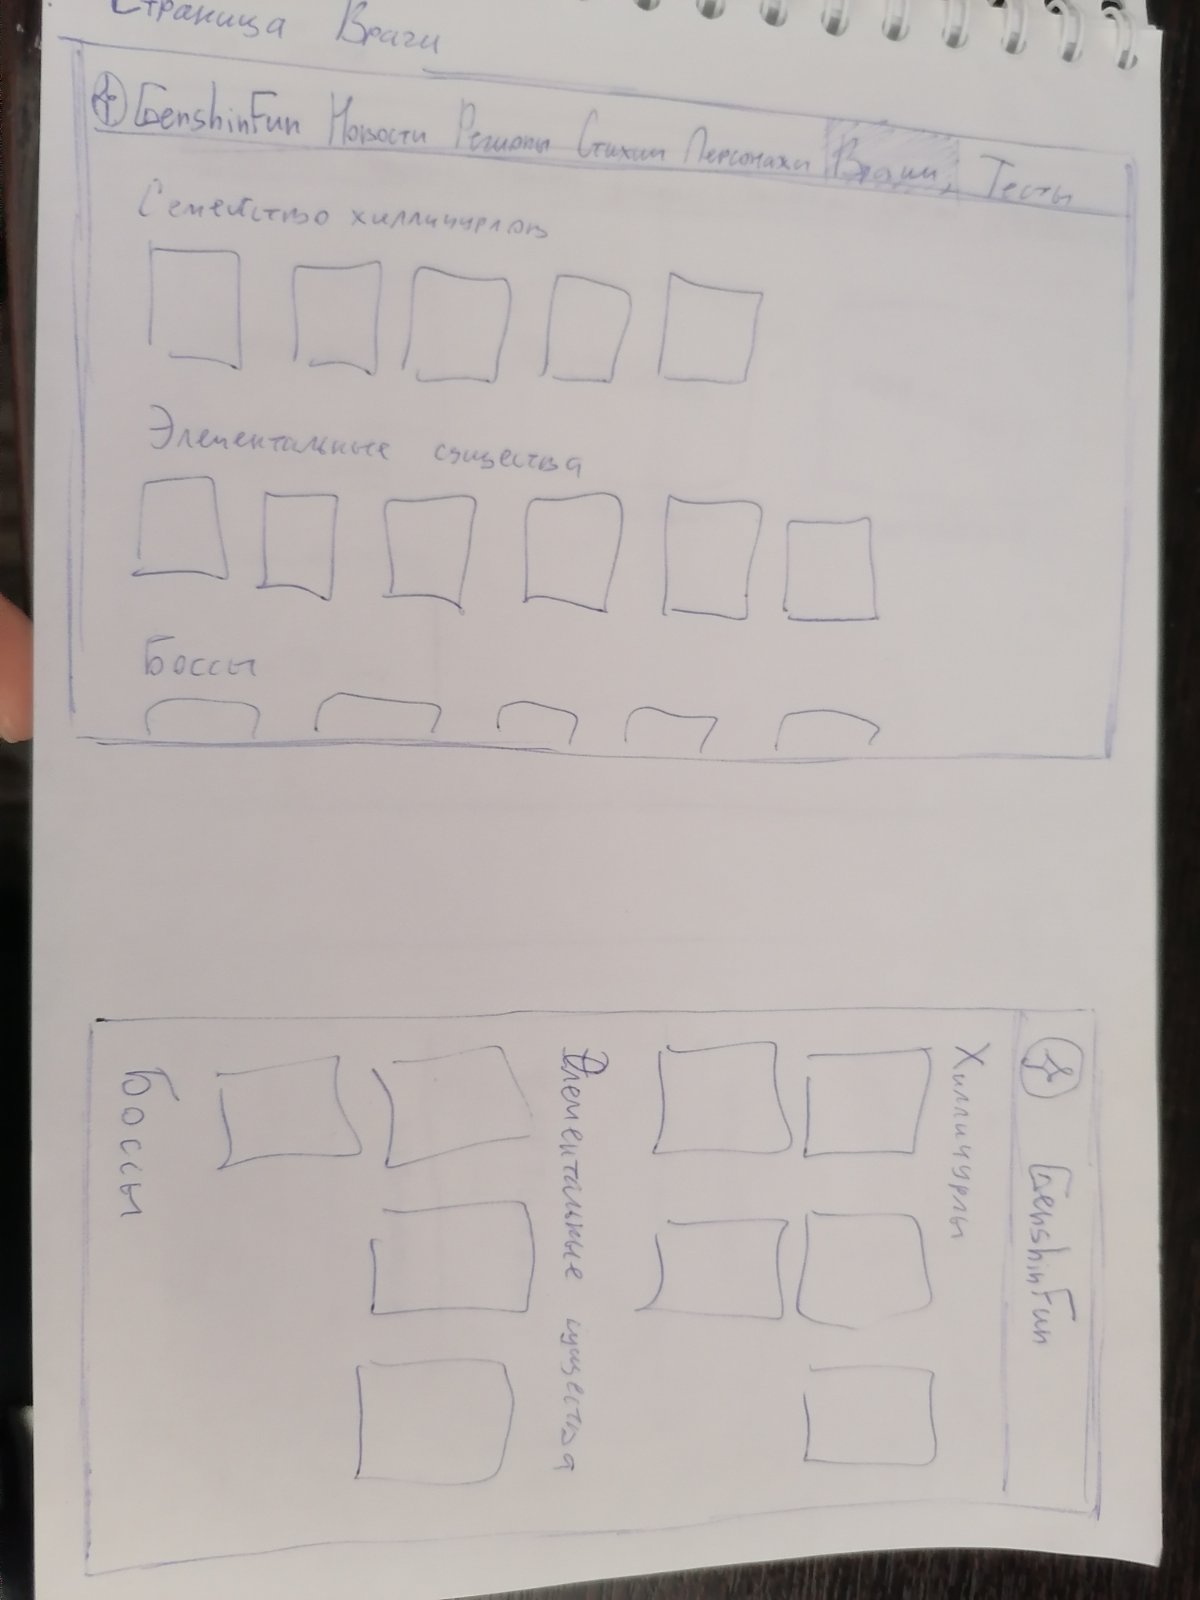 Страница Враги
GenshinFun Новости Регионы Стихии Персонажи Враги Тесты
Семейство хилличурлов
Элементальные существа
Боссы
GenshinFun
Хилличурлы
Элементальные существа
Боссы